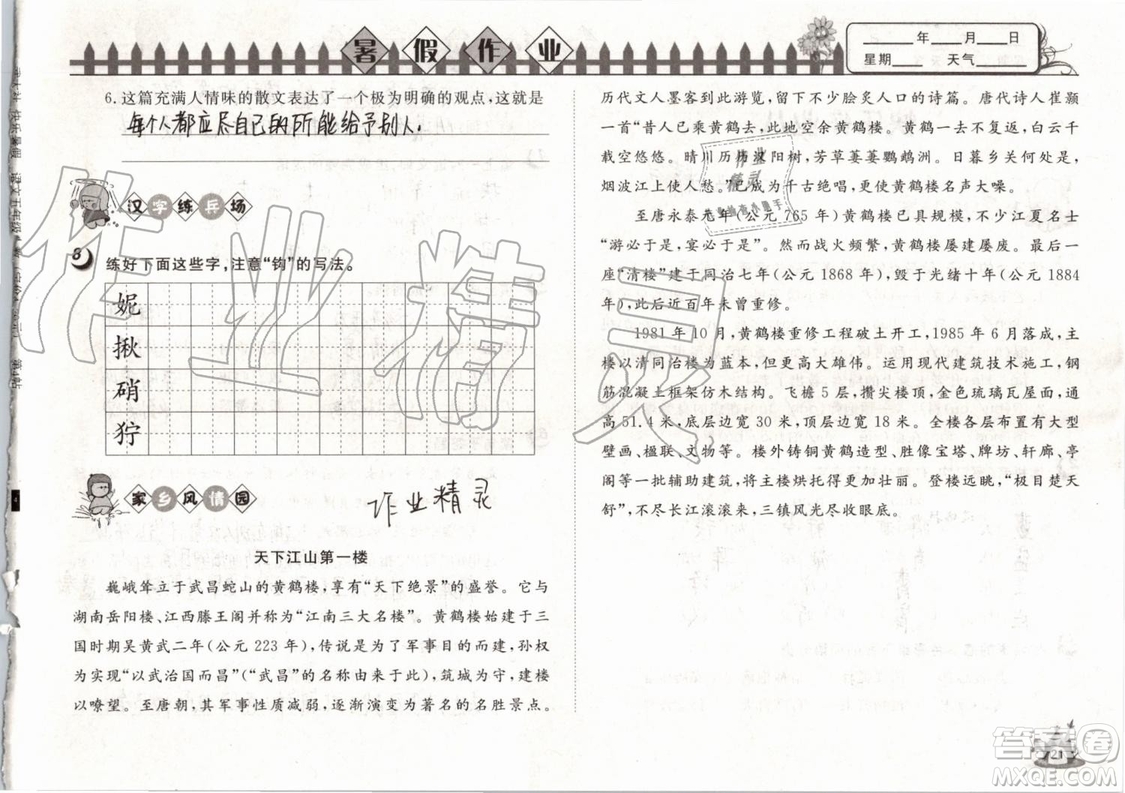 暑假作业
____年____月____日
星期____ 天气____
6.这篇充满人情味的散文表达了一个极为明确的观点，这就是
每个人都应尽自己的所能给予别人.
汉字练兵场
8
练好下面这些字，注意“钩”的写法。
妮
揪
硝
狞
家乡风情园
作业精灵
天下江山第一楼
巍峨耸立于武昌蛇山的黄鹤楼，享有“天下绝景”的盛誉。它与
湖南岳阳楼、江西滕王阁并称为“江南三大名楼”。黄鹤楼始建于三
国时期吴黄武二年（公元 223 年），传说是为了军事目的而建，孙权
为实现“以武治国而昌”（“武昌”的名称由来于此），筑城为守，建楼
以嘹望。至唐朝，其军事性质减弱，逐渐演变为著名的名胜景点。
历代文人墨客到此游览，留下不少脍炙人口的诗篇。唐代诗人崔颢
一首“昔人已乘黄鹤去，此地空余黄鹤楼。黄鹤一去不复返，白云千
载空悠悠。晴川历历汉阳树，芳草萋萋鹦鹉洲。日暮乡关何处是，
烟波江上使人愁。”已成为千古绝唱，更使黄鹤楼名声大噪。
至唐永泰元年（公元 765 年）黄鹤楼已具规模，不少江夏名士
“游必于是，宴必于是”。然而战火频繁，黄鹤楼屡建屡废。最后一
座“清楼”建于同治七年（公元 1868 年），毁于光绪十年（公元 1884
年），此后近百年未曾重修。
1981 年 10 月，黄鹤楼重修工程破土开工，1985 年 6 月落成，主
楼以清同治楼为蓝本，但更高大雄伟。运用现代建筑技术施工，钢
筋混凝土框架仿木结构。飞檐 5 层，攒尖楼顶，金色琉璃瓦屋面，通
高 51.4 米，底层边宽 30 米，顶层边宽 18 米。全楼各层布置有大型
壁画、楹联、文物等。楼外铸铜黄鹤造型、胜像宝塔、牌坊、轩廊、亭
阁等一批辅助建筑，将主楼烘托得更加壮丽。登楼远眺，“极目楚天
舒”，不尽长江滚滚来，三镇风光尽收眼底。
作业精灵
答案卷
MXQE.COM
21